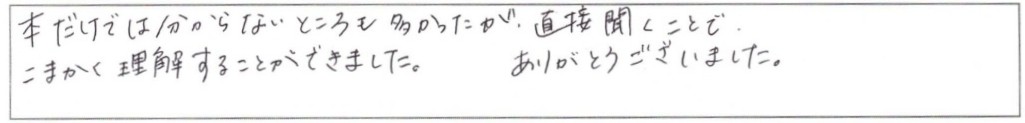 本だけでは分からないところも多かったが、直接聞くことで、
こまかく理解することができました。 ありがとうございました。